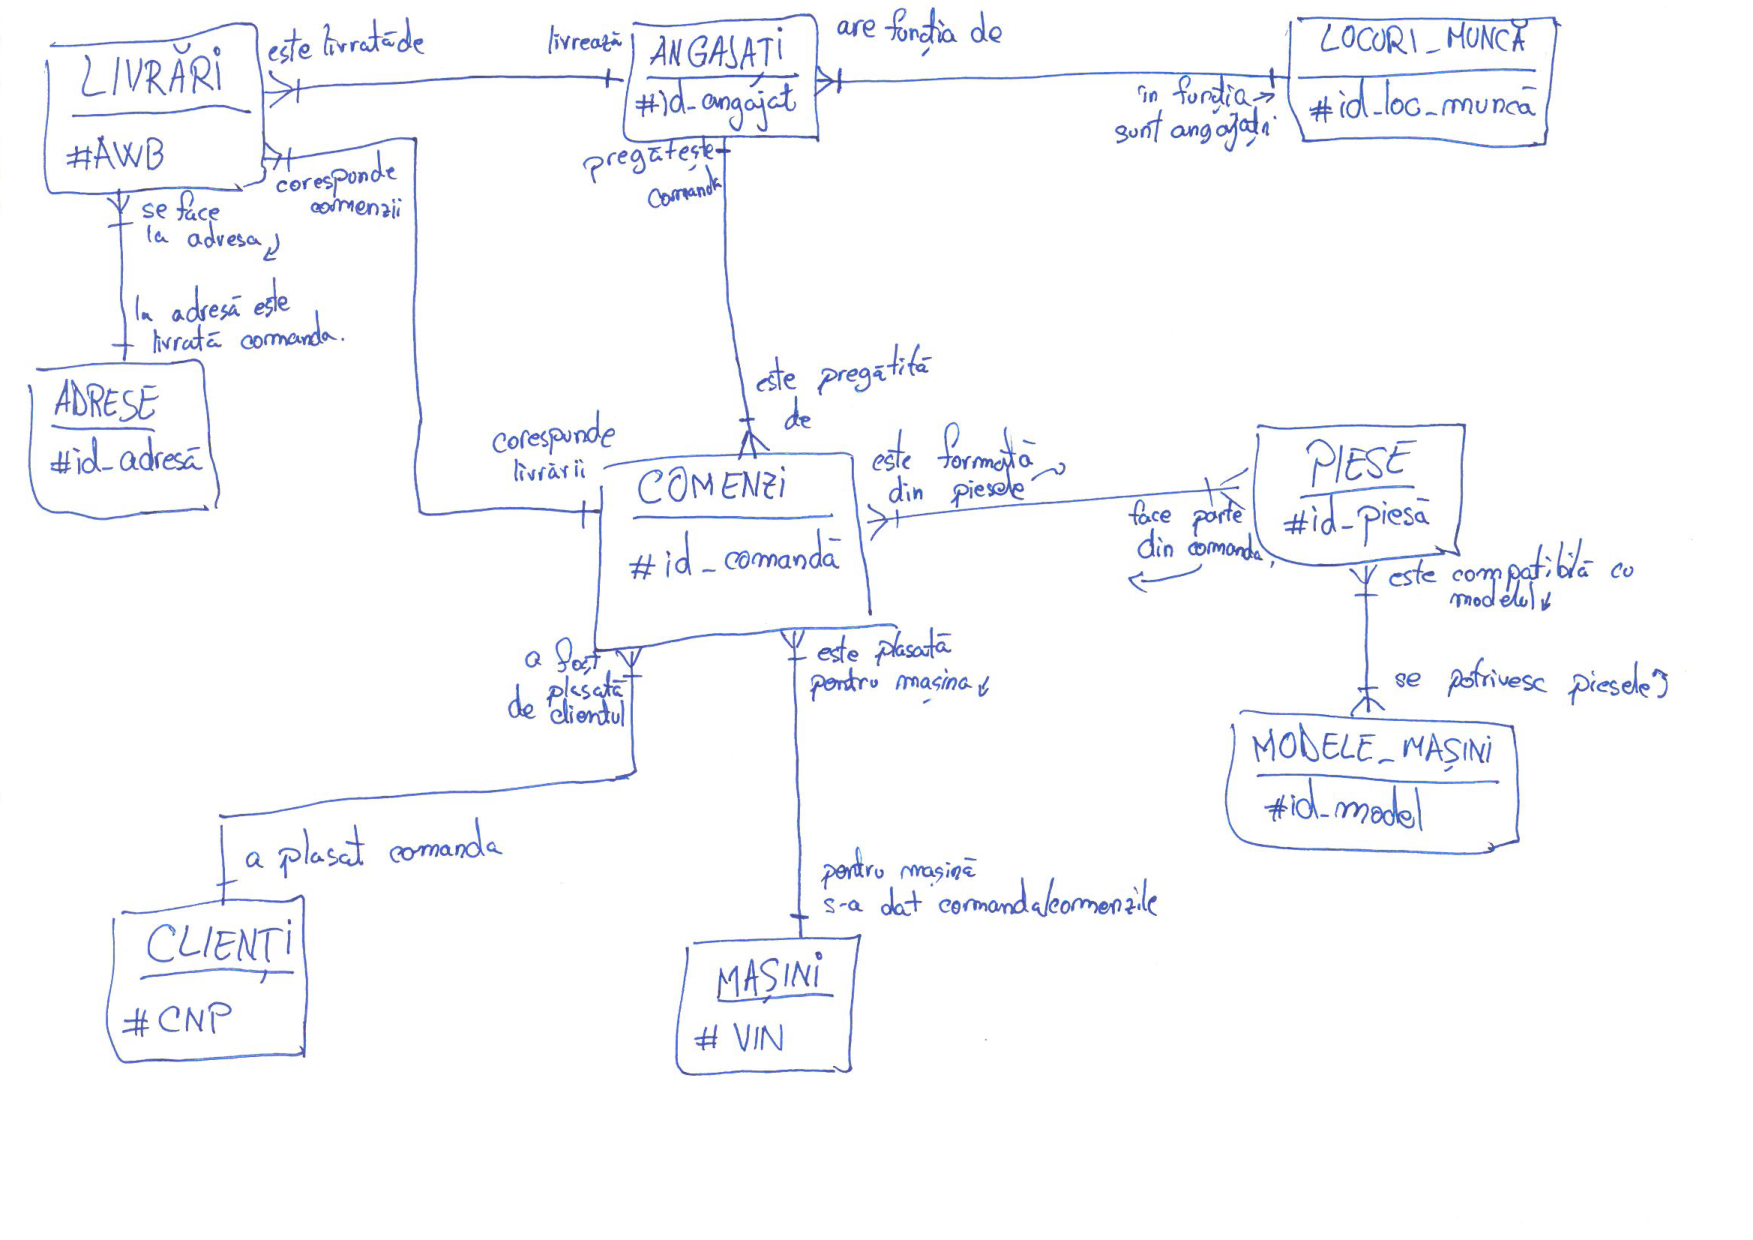 LIVRĂRI
#AWB
este livrată de
livrează
ANGAJAȚI
#id_angajat
are funția de
în funția →
sunt angajați
LOCURI_MUNCĂ
#id_loc_muncă
corespunde
comenzii
pregătește
comanda
se face
la adresa
la adresă este
livrată comanda.
ADRESE
#id_adresă
este pregătită
de
corespunde
livrării
COMENZI
#id_comandă
este formată
din piesele
face parte
din comanda
PIESE
#id_piesă
este compatibilă cu
modelul
se potrivesc piesele
MODELE_MAȘINI
#id_model
a fost
plasată
de clientul
este plasată
pentru mașina
a plasat comanda
CLIENȚI
#CNP
pentru mașină
s-a dat comanda/comenzile
MAȘINI
# VIN